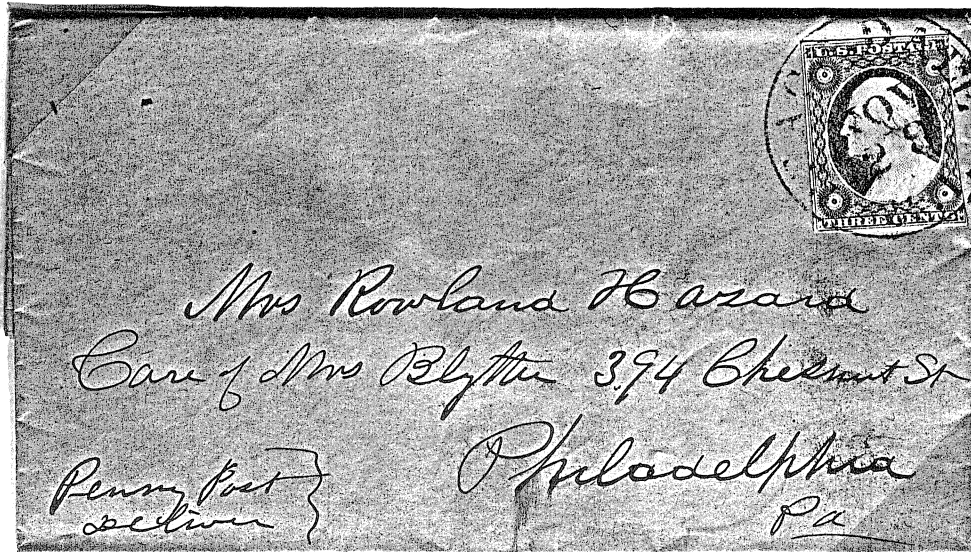 U.S. POSTAGE
NOV
THREE CENTS
Mrs Rowland Hazard
Care of Mrs Blythe 394 Chesnut St
Philadelphia
Pa
Penny Post
deliver